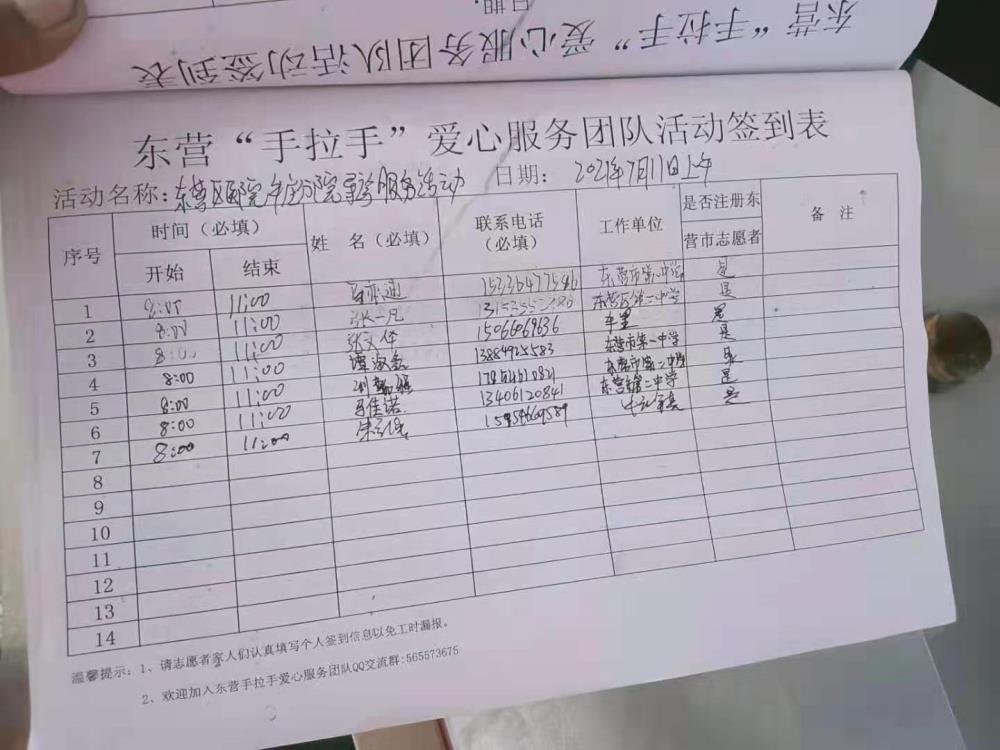 日期.
东营“手拉手”爱心服务团队活动签到表
东营“手拉手”爱心服务团队活动签到表
活动名称: 东营区医院 分院导诊服务活动 日期: 2021年7月11日上午
序号 时间（必填） 姓 名（必填） 联系电话（必填） 工作单位 是否注册东营市志愿者 备 注
开始 结束
1 8:00 11:00 15336477546 东营市第一中学 是
2 8:00 11:00 张一凡 东营区第二中学 是
3 8:00 11:00 张文华 15066069686 是
4 8:00 11:00 谭淑敏 13884925583 东营市第一中学 是
5 8:00 11:00 东营市第二中学 是
6 8:00 11:00 马佳诺 13406120841 东营第二中学 是
7 8:00 11:00 是
8
9
10
11
12
13
14
温馨提示: 1、请志愿者家人们认真填写个人签到信息以免工时漏报。
2、欢迎加入东营手拉手爱心服务团队QQ交流群:565573675